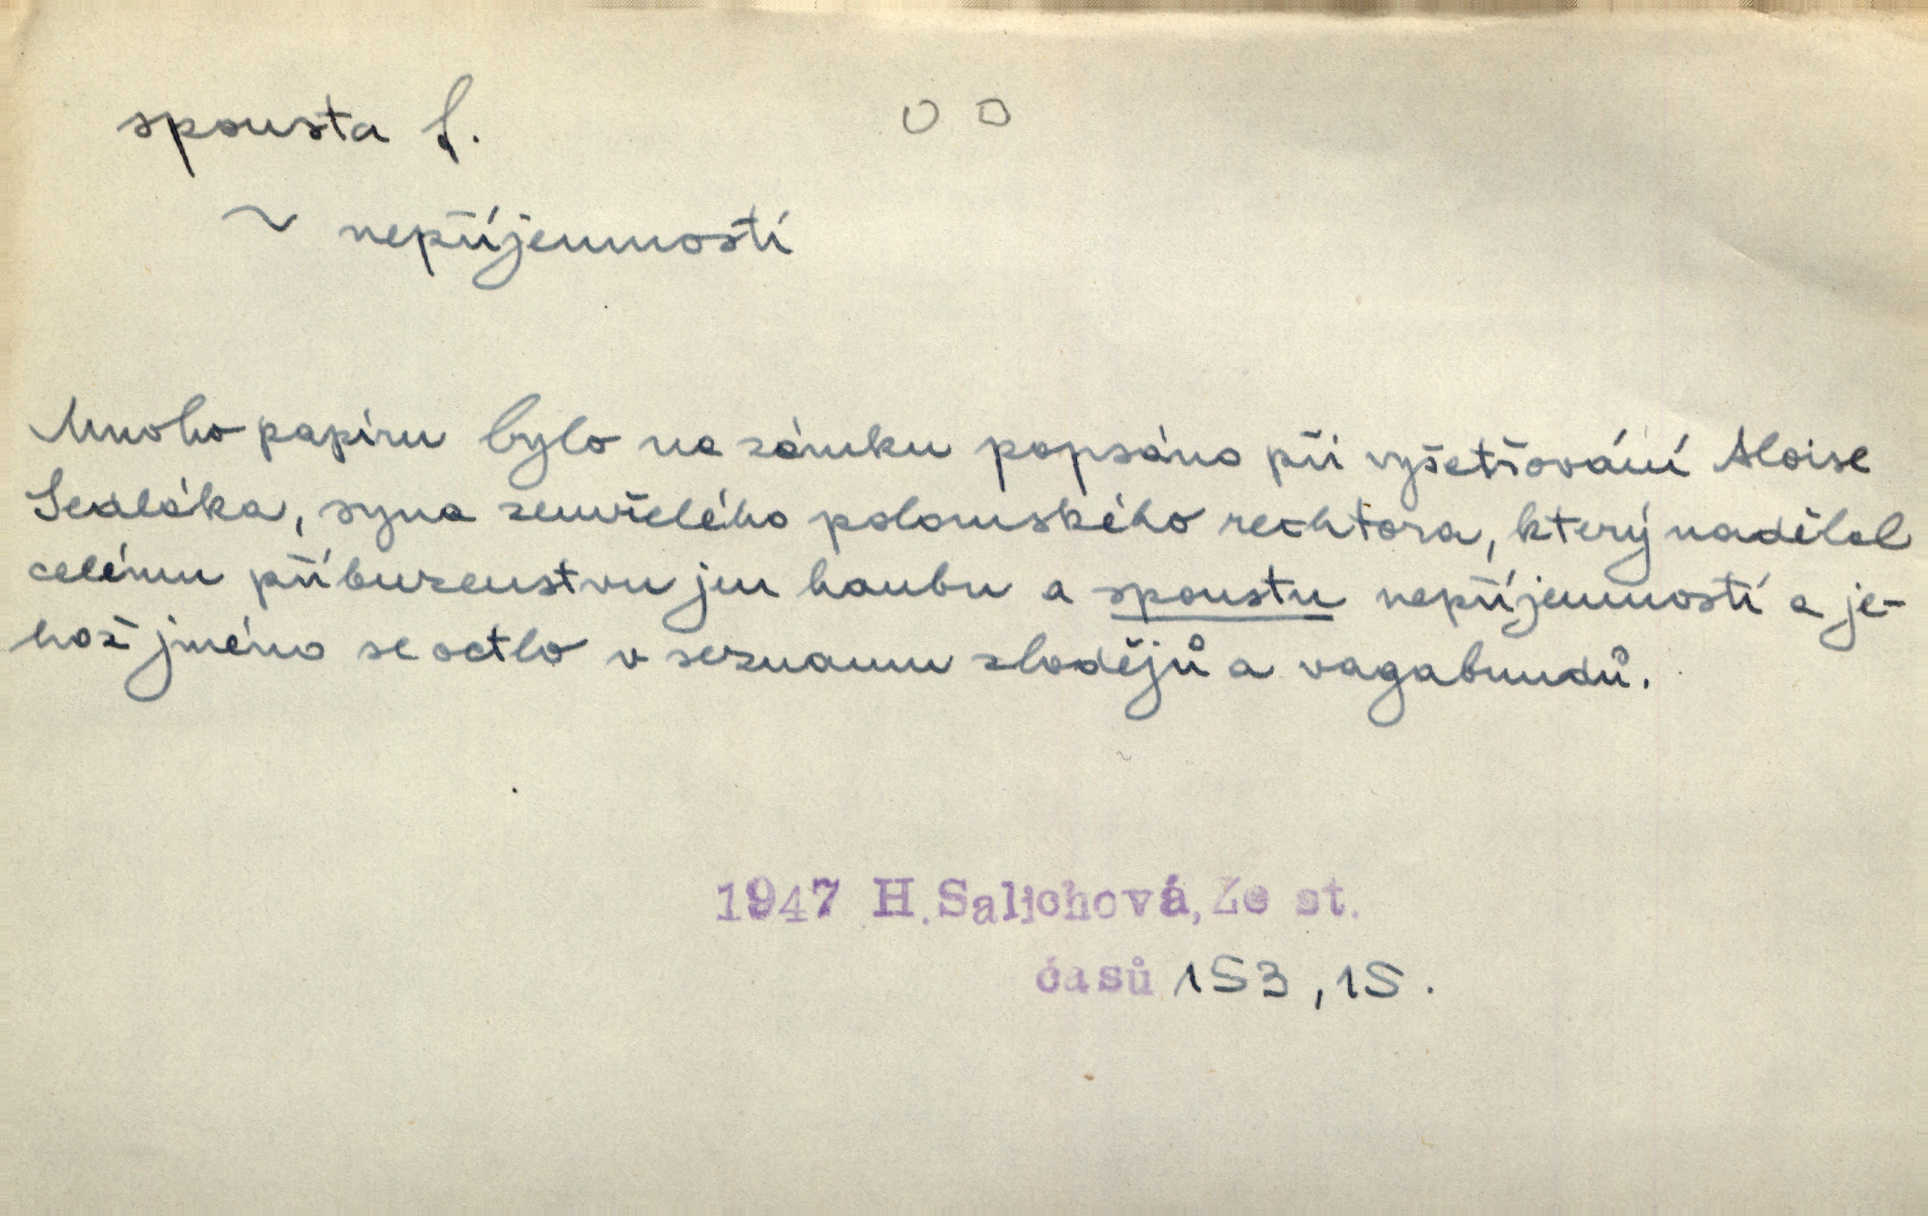 spousta f.
~ nepříjemností
Mnoho papíru bylo na zámku popsáno při vyšetřování Aloise
Sedláka, syna zemřelého polomského rechtora, který nadělal
celému příbuzenstvu jen hanbu a spoustu nepříjemností a je-
hož jméno se octlo v seznamu zlodějů a vagabundů.
1947 H.Salichová, Ze st.
časů 153, 15.